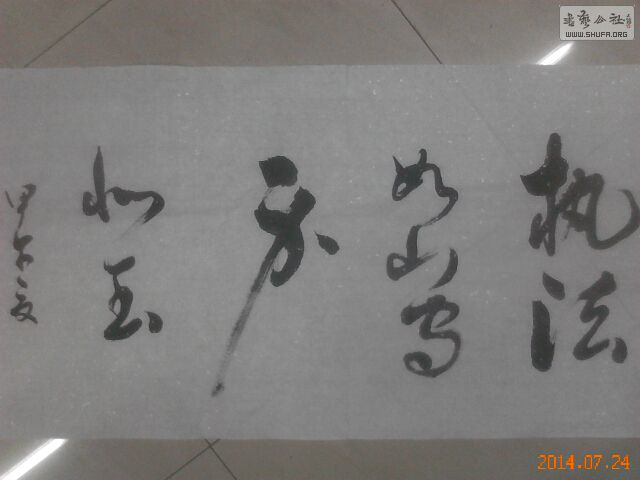 执法
如山守
身
如玉
甲午夏
书艺公社
WWW.SHUFA.ORG
2014.07.24